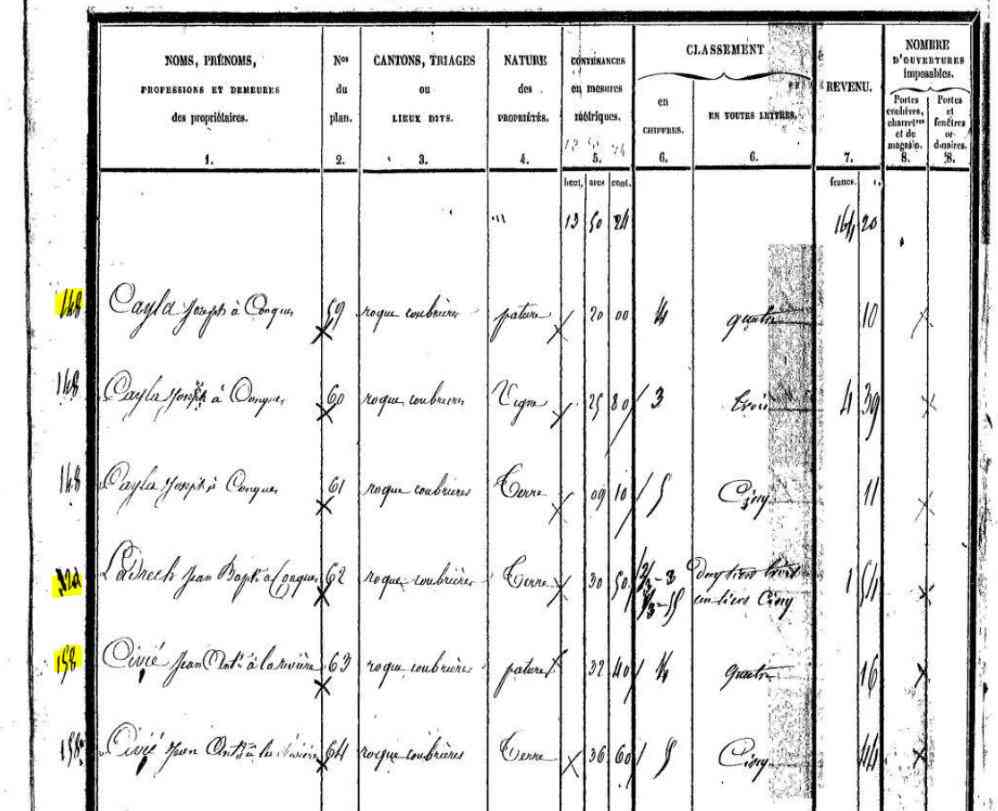 NOMS, PRÉNOMS, PROFESSIONS ET DEMEURES des propriétaires. 1.
Nos du plan. 2.
CANTONS, TRIAGES OU LIEUX DITS. 3.
NATURE des PROPRIÉTÉS. 4.
CONTENANCES en mesures métriques. 5.
CLASSEMENT
en CHIFFRES. 6.
EN TOUTES LETTRES. 6.
REVENU. 7.
NOMBRE D'OUVERTURES imposables.
Portes cochères, charretres et de magasin. 8.
Portes et fenêtres or- dinaires. 8.
hect. ares cent. francs. c.
13 50 24 164 20
148 Cayla Joseph à Conques 59 roque coubrières pature 20 00 4 quatre 10
148 Cayla Joseph à Conques 60 roque coubrières Vigne 25 80 3 trois 4 39
148 Cayla Joseph à Conques 61 roque coubrières Terre 09 10 5 Cinq 11
Ladrech Jean Bapte à Conques 62 roque coubrières Terre 30 50 2/3-3 deux tiers trois 1 54
1/3-5 un tiers Cinq
158 Civié Jean Ante à la rivière 63 roque coubrières pature 32 40 4 quatre 16
158 Civié Jean Ante à la rivière 64 roque coubrières Terre 36 60 5 Cinq 44